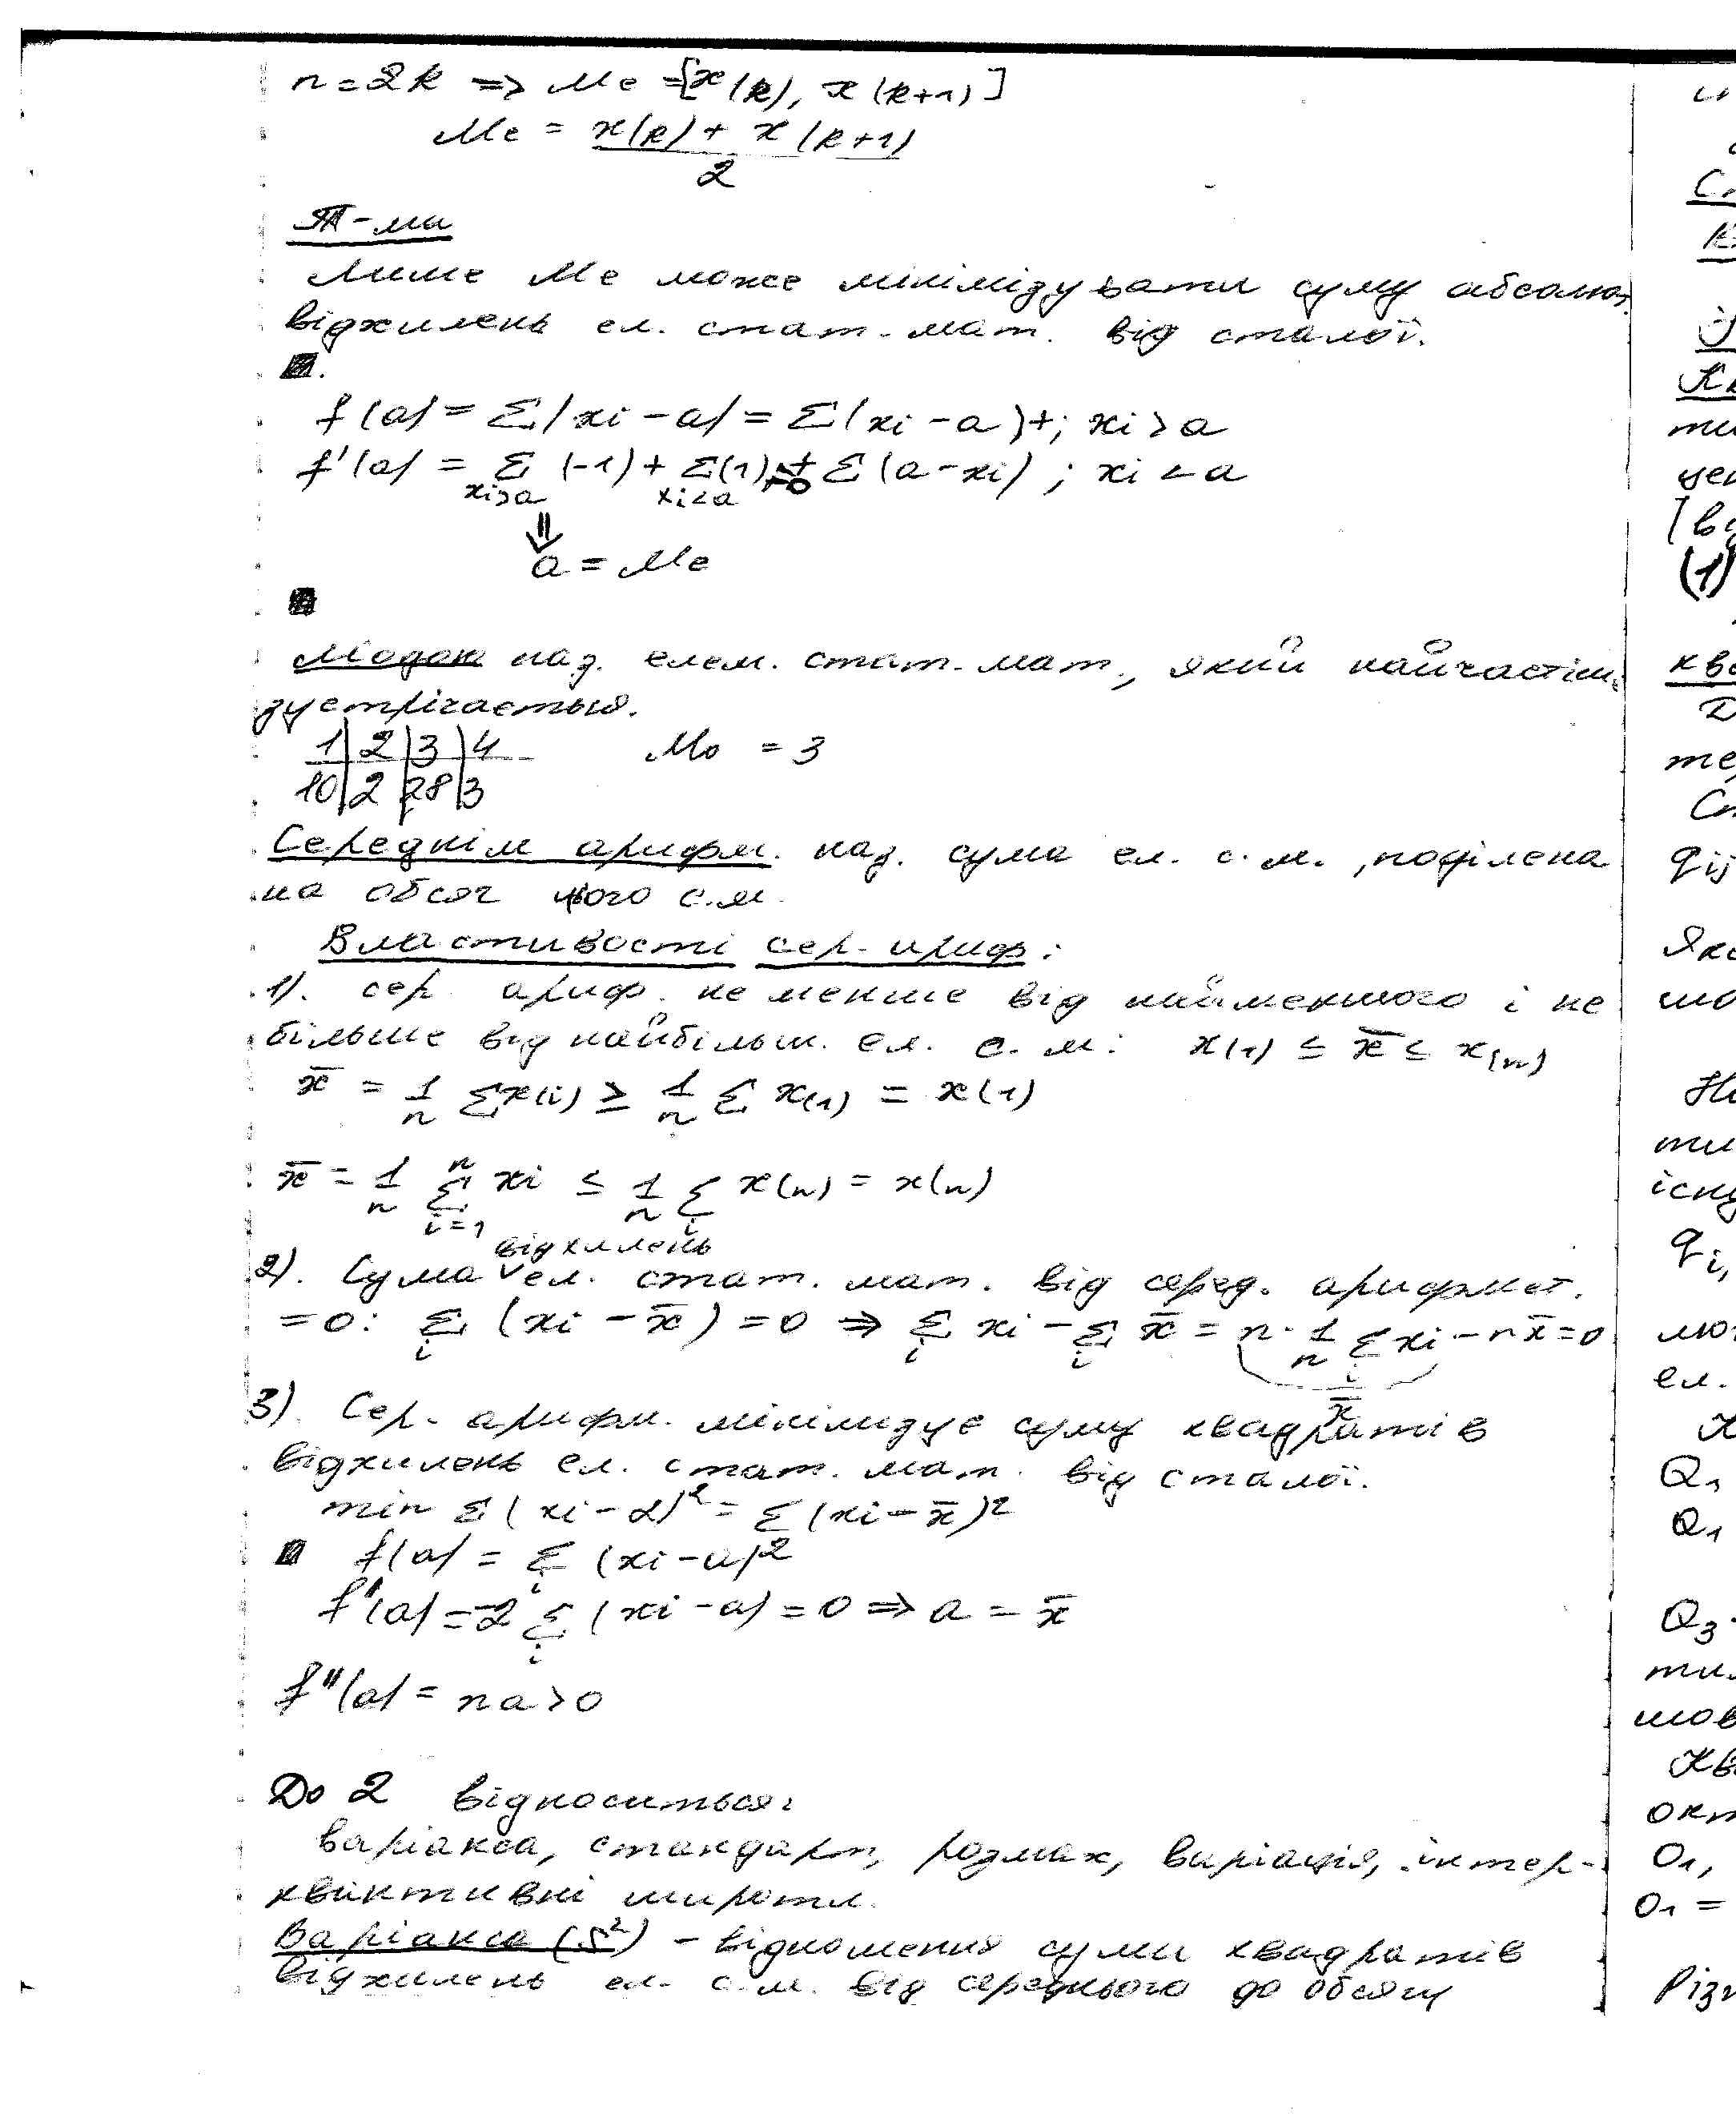 n = 2k => Me = [x(k), x(k+1)]
Me = x(k) + x(k+1)
2
Т-ма
Лише Me може мінімізувати суму абсолют.
відхилень ел. стат. мат. від сталої.
f(a) = Σ|xi - a| = Σ(xi - a) +; xi > a
f'(a) = Σ (-1) + Σ(1) = 0 + Σ(a - xi) ; xi < a
xi>a xi<a
⇓
a = Me
Модою наз. елем. стат. мат., який найчастіш.
зустрічається.
1 | 2 | 3 | 4 Mo = 3
10 | 2 | 28 | 3
Середнім арифм. наз. сума ел. с.м., поділена
на обсяг цього с.м.
Властивості сер. ариф:
1). сер. ариф. не менше від найменшого і не
більше від найбільш. ел. с. м: x(1) ≤ x̄ ≤ x(n)
x̄ = 1/n Σ x(i) ≥ 1/n Σ x(1) = x(1)
x̄ = 1/n Σ xi ≤ 1/n Σ x(n) = x(n)
n i=1 i
відхилень
2). Сума ∨ ел. стат. мат. від серед. арифмет.
=0: Σ (xi - x̄) = 0 => Σ xi - Σ x̄ = n · 1/n Σ xi - n x̄ = 0
i i i i
x̄
3). Сер. арифм. мінімізує суму квадратів
відхилень ел. стат. мат. від сталої.
min Σ (xi - α)² = Σ (xi - x̄)²
f(a) = Σ (xi - a)²
i
f'(a) = -2 Σ (xi - a) = 0 => a = x̄
i
f''(a) = na > 0
До 2 відноситься:
варіанса, стандарт, розмах, варіація, інтер-
квантивні широти.
Варіанса (S²) - відношення суми квадратів
відхилень ел. с.м. від середнього до обсягу